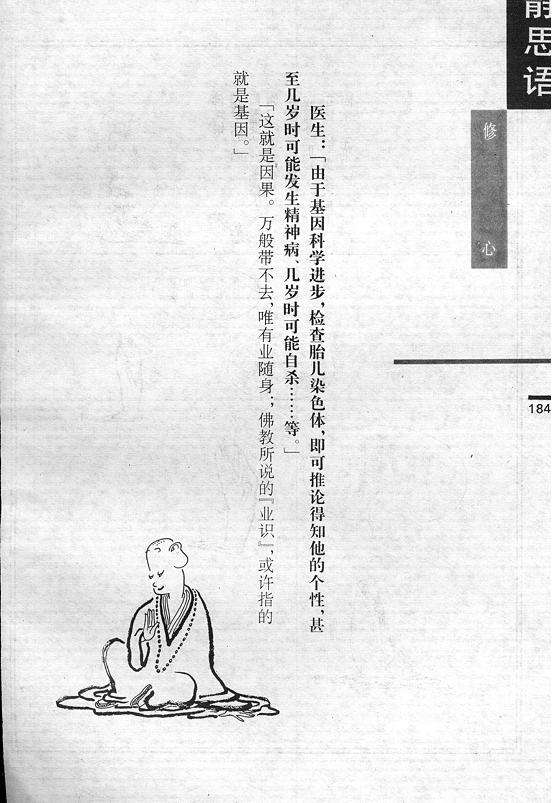 静思语
修心
184
医生：「由于基因科学进步，检查胎儿染色体，即可推论得知他的个性，甚
至几岁时可能发生精神病、几岁时可能自杀……等。」
「这就是因果。万般带不去，唯有业随身；佛教所说的『业识』，或许指的
就是基因。」